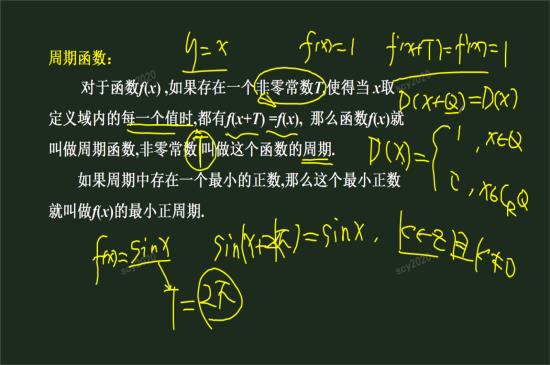 y=x f(x)=1 f(x+T)=f(x)=1
周期函数:
对于函数f(x),如果存在一个非零常数T,使得当x取
D(x+Q)=D(x)
定义域内的每一个值时,都有f(x+T)=f(x), 那么函数f(x)就
叫做周期函数,非零常数T叫做这个函数的周期.
D(x)={1, x∈Q
0, x∈C_RQ
如果周期中存在一个最小的正数,那么这个最小正数
就叫做f(x)的最小正周期.
f(x)=sinx sin(x+2kπ)=sinx, k∈Z且k≠0
T=2π
scy2020
scy2020
scy2020
scy2020